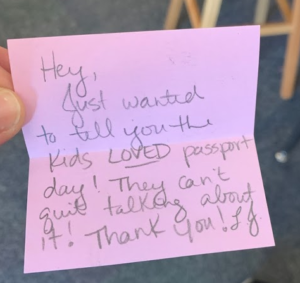 Hey,
Just wanted
to tell you the
kids LOVED passport
day! They can't
quit talking about
it! Thank you!